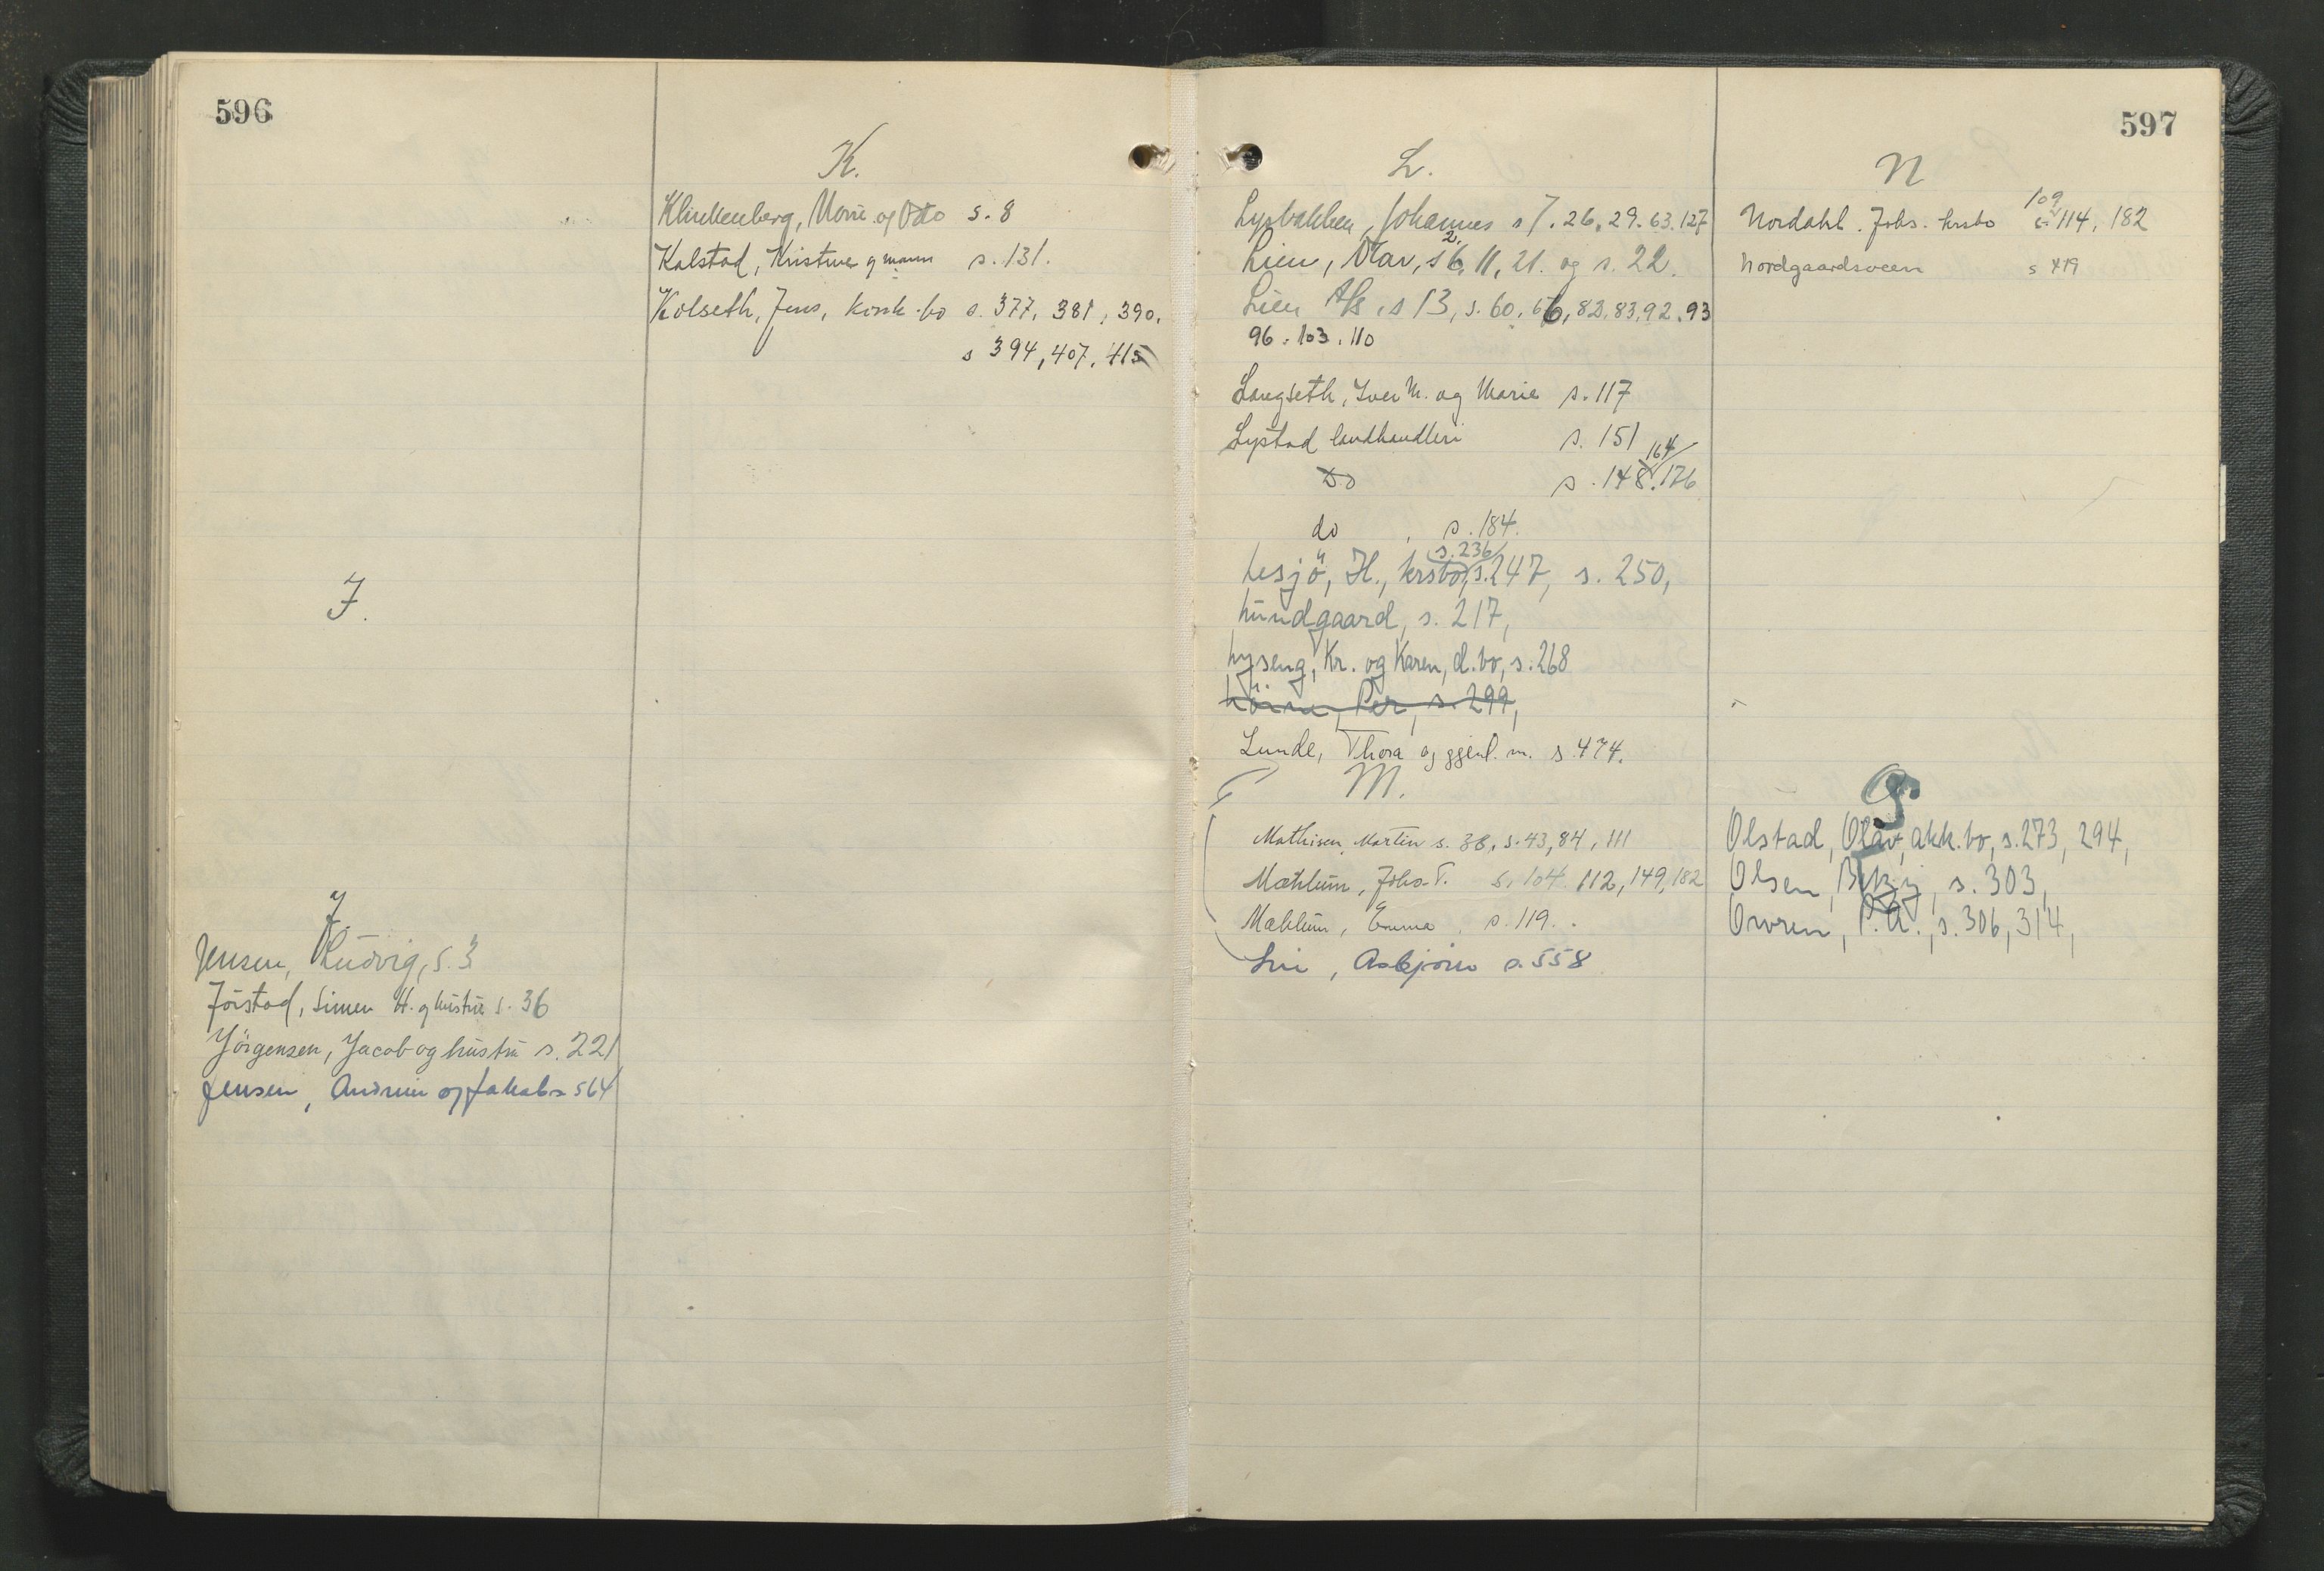 596
I.
J.
Jensen, Ludvig, s. 3
Jörstad, Simen H. og hustru s. 36
Jörgensen, Jacob og hustru s. 221
Jensen, og Jakob s 564
K.
Klinkenberg, Marie og Otto s. 8
Kalstad, Kristine og mann s. 131.
Kolseth, Jens, konk.bo s. 377, 381, 390.
s 394, 407, 415
597
L.
Lysbakken, Johannes s 7. 26. 29. 63. 127
2.
Lien, Olav, s 6, 11, 21. og s. 22.
Lien A/s, s 13, s. 60. 66, 82, 83, 92. 93
96. 103. 110
Langseth, Iver M. og Marie s. 117
Lystad landhandleri s. 151
164
Do s. 148. 176
do s. 184.
s. 236
Lesjö, H., krsbo, s. 247, s. 250,
Lundgaard, s. 217,
Lyseng, Kr. og Karen, d.bo, s. 268
Per, s. 299,
Lunde, Thora og gjenl. m. s. 474.
M.
Mathisen, Martin s. 38, s. 43, 84, 111
Mæhlum, Johs. T. s. 104 112, 149, 182
Mæhlum, Emma, s. 119.
Lie, Asbjörn s. 558
N
109
Nordahl. Johs. krsbo s. 114, 182
Nordgaardsveen s 419
O
Olstad, Olav, akk.bo, s. 273, 294,
Olsen, s. 303,
Owren, P.A., s. 306, 314,